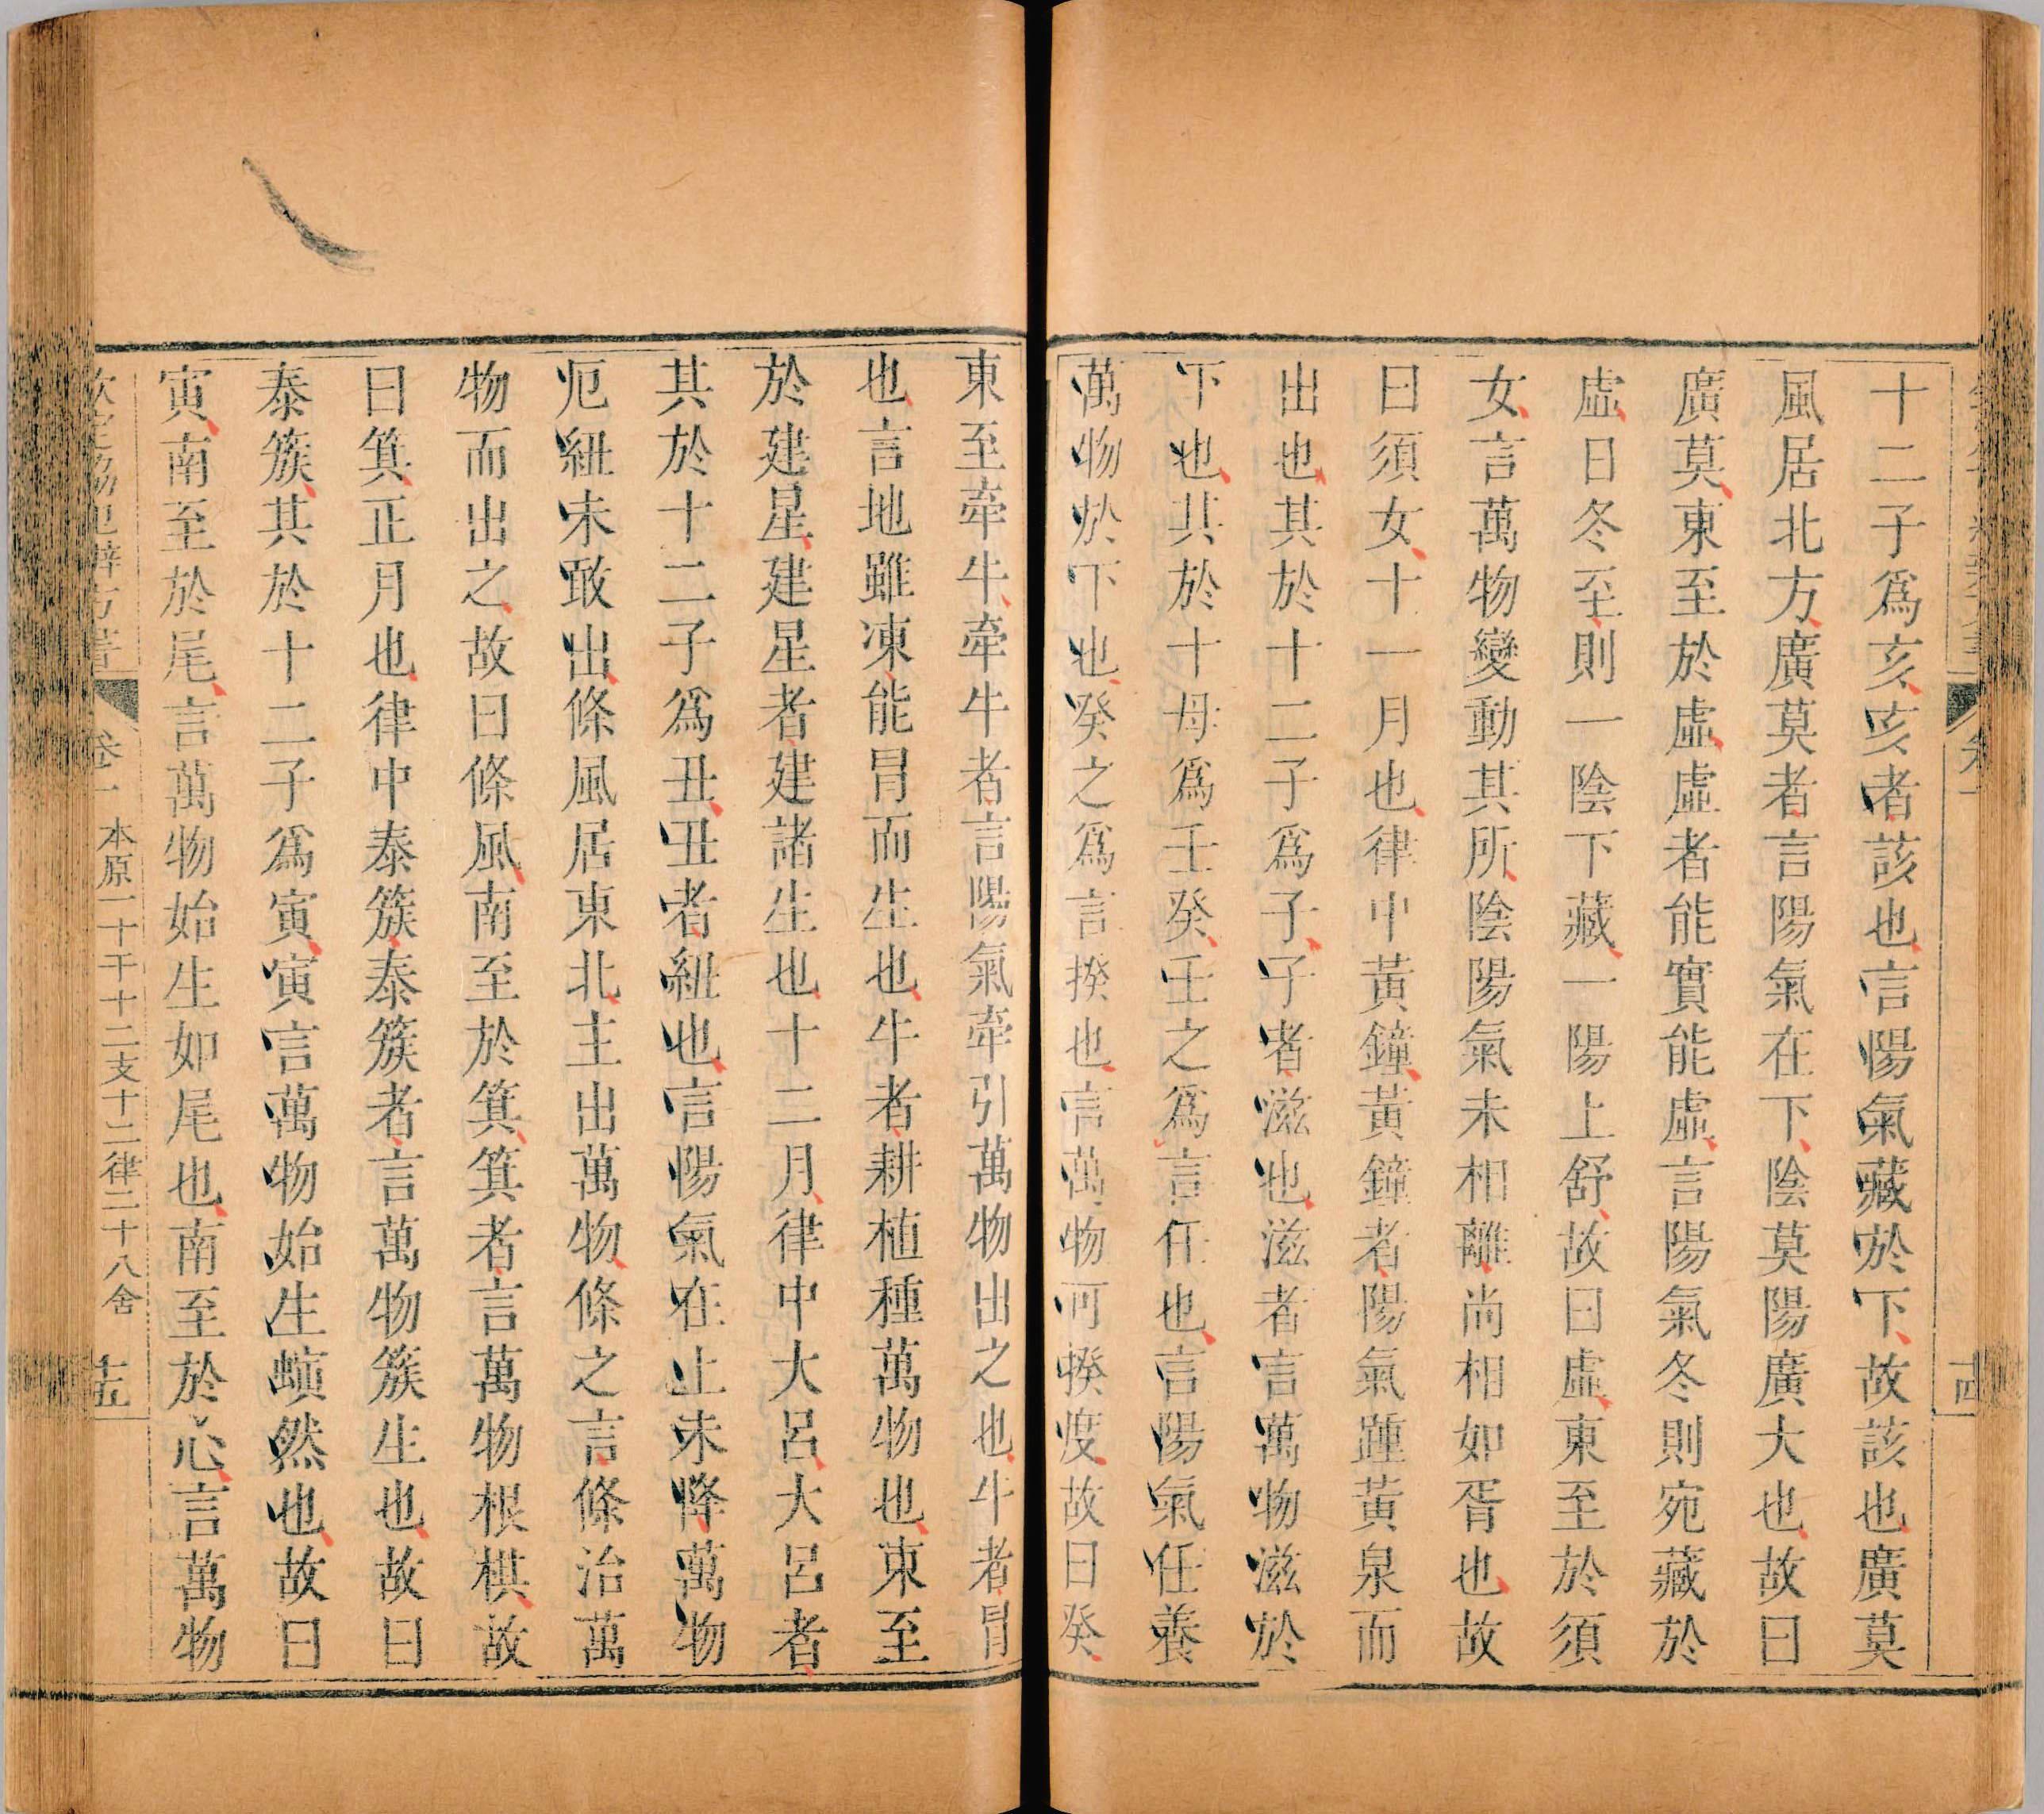 十二子爲亥亥者該也言陽氣藏於下故該也廣莫
風居北方廣莫者言陽氣在下陰莫陽廣大也故曰
廣莫東至於虛虛者能實能虛言陽氣冬則宛藏於
虛日冬至則一陰下藏一陽上舒故曰虛東至於須
女言萬物變動其所陰陽氣未相離尚相如胥也故
曰須女十一月也律中黃鐘黃鐘者陽氣踵黃泉而
出也其於十二子爲子子者滋也滋者言萬物滋於
下也其於十母爲壬癸壬之爲言任也言陽氣任養
萬物於下也癸之爲言揆也言萬物可揆度故曰癸
東至牽牛牽牛者言陽氣牽引萬物出之也牛者冒
也言地雖凍能冒而生也牛者耕植種萬物也東至
於建星建星者建諸生也十二月律中大呂大呂者
其於十二子爲丑丑者紐也言陽氣在上未降萬物
厄紐未敢出條風居東北主出萬物條之言條治萬
物而出之故曰條風南至於箕箕者言萬物根棋故
曰箕正月也律中泰簇泰簇者言萬物簇生也故曰
泰簇其於十二子爲寅寅言萬物始生螾然也故曰
寅南至於尾言萬物始生如尾也南至於心言萬物
卷一 本原一十干十二支十二律二十八舍 十五